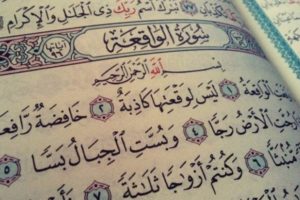 تَبَٰرَكَ ٱسْمُ رَبِّكَ ذِى ٱلْجَلَٰلِ وَٱلْإِكْرَامِ
سُورَةُ الوَاقِعَةِ آياتها
بِسْمِ ٱللَّهِ ٱلرَّحْمَٰنِ ٱلرَّحِيمِ
ٱلْوَاقِعَةُ ١ لَيْسَ لِوَقْعَتِهَا كَاذِبَةٌ ٢ خَافِضَةٌ
ٱلْأَرْضُ رَجًّا ٤ وَبُسَّتِ ٱلْجِبَالُ بَسًّا ٥
مُّنۢبَثًّا ٦ وَكُنتُمْ أَزْوَٰجًا ثَلَٰثَةً ٧